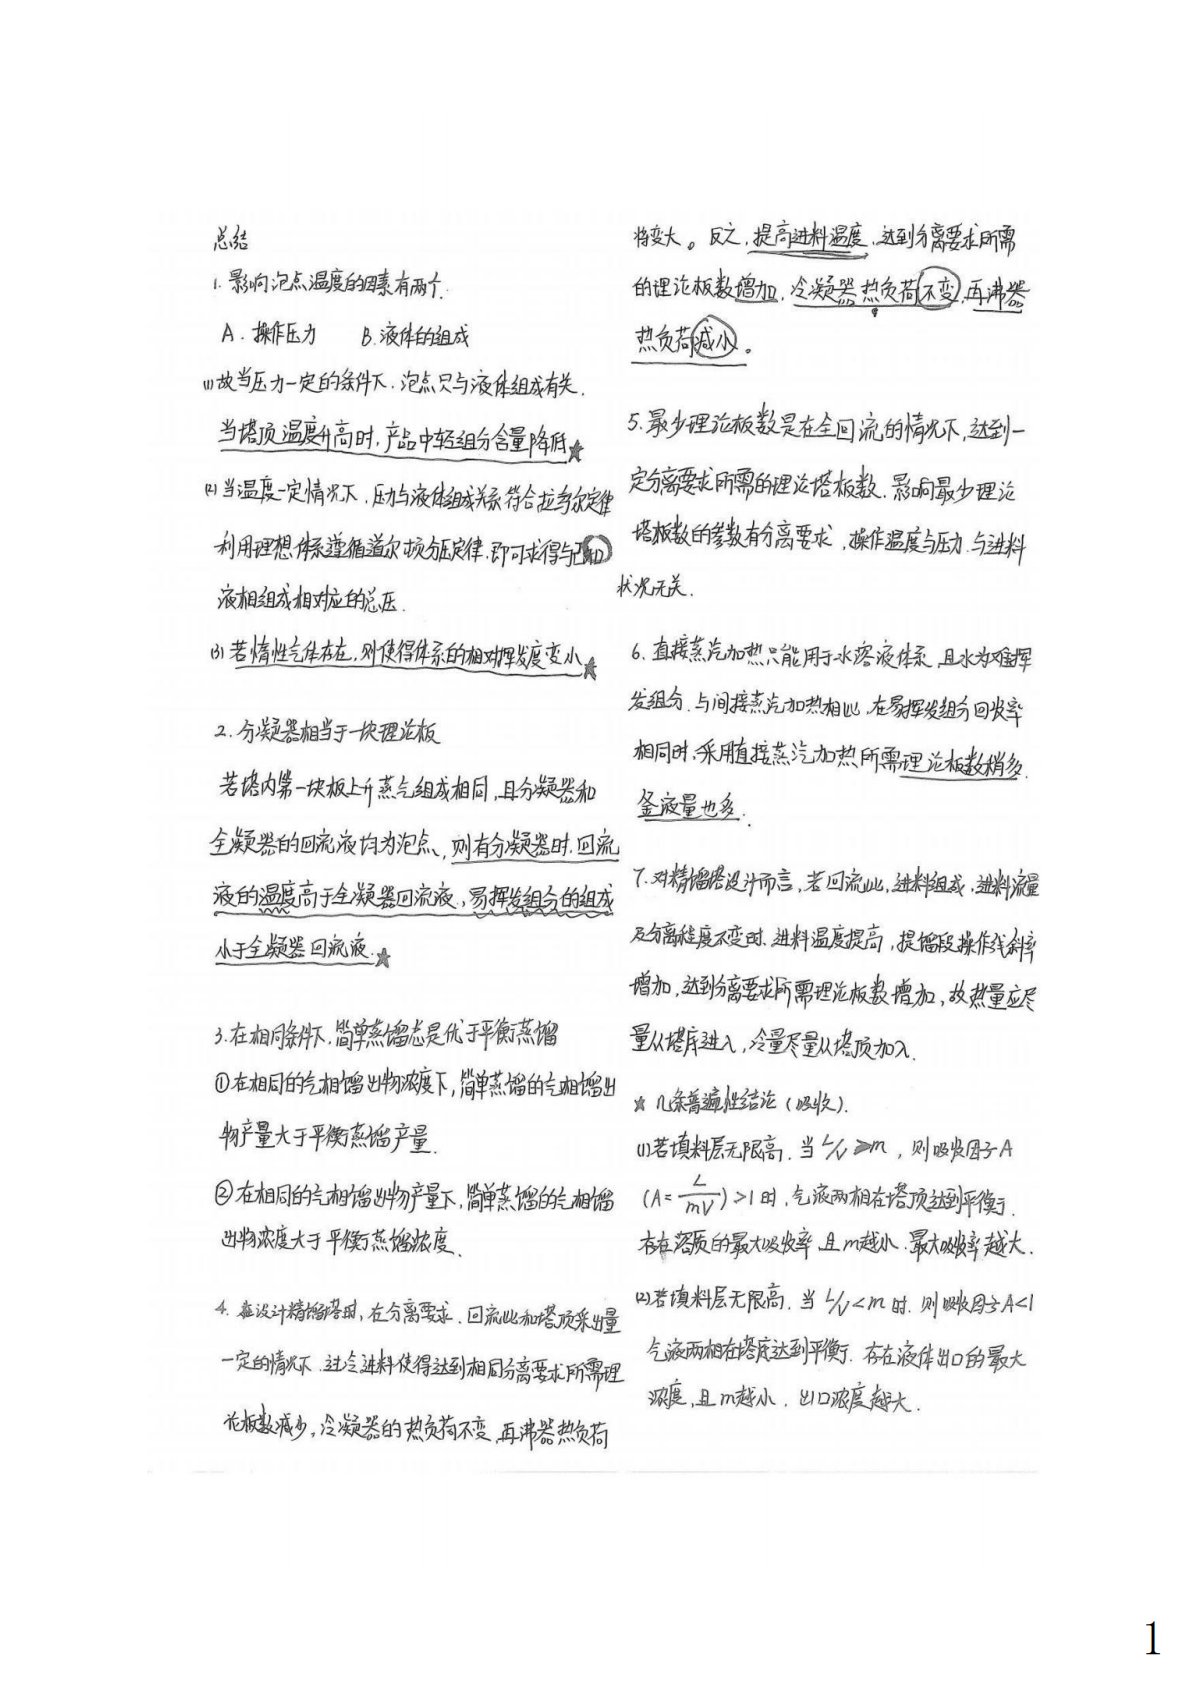 总结
1. 影响泡点温度的因素有两个.
A. 操作压力 B. 液体的组成
(1)故当压力一定的条件下.泡点只与液体组成有关.
当塔顶温度升高时,产品中轻组分含量降低★
(2)当温度一定情况下.压力与液体组成关系符合拉乌尔定律
利用理想体系遵循道尔顿分压定律.即可求得与已知
液相组成相对应的总压.
(3)若惰性气体存在,则使得体系的相对挥发度变小★
2. 分凝器相当于一块理论板
若塔内第一块板上升蒸气组成相同,且分凝器和
全凝器的回流液均为泡点、则有分凝器时.回流
液的温度高于全凝器回流液,易挥发组分的组成
小于全凝器回流液.★
3.在相同条件下,简单蒸馏总是优于平衡蒸馏
①在相同的气相馏出物浓度下,简单蒸馏的气相馏出
物产量大于平衡蒸馏产量.
②在相同的气相馏出物产量下,简单蒸馏的气相馏
出物浓度大于平衡蒸馏浓度.
4. 在设计精馏塔时,在分离要求.回流比和塔顶采出量
一定的情况下.过冷进料使得达到相同分离要求所需理
论板数减少,冷凝器的热负荷不变,再沸器热负荷
将变大。反之,提高进料温度,达到分离要求所需
的理论板数增加,冷凝器热负荷不变,再沸器
热负荷减小。
5.最少理论板数是在全回流的情况下,达到一
定分离要求所需的理论塔板数.影响最少理论
塔板数的参数有分离要求,操作温度与压力.与进料
状况无关.
6. 直接蒸汽加热只能用于水溶液体系,且水为难挥
发组分.与间接蒸汽加热相比,在易挥发组分回收率
相同时,采用直接蒸汽加热所需理论板数稍多.
釜液量也多.
7.对精馏塔设计而言,若回流比,进料组成,进料流量
及分离程度不变时.进料温度提高,提馏段操作线斜率
增加,达到分离要求所需理论板数增加,故热量应尽
量从塔底进入,冷量尽量从塔顶加入.
★ 几条普遍性结论(吸收).
(1)若填料层无限高.当L/V≥m,则吸收因子A
(A=L/mV)>1时,气液两相在塔顶达到平衡.
存在溶质的最大吸收率,且m越小.最大吸收率越大.
(2)若填料层无限高.当L/V<m时.则吸收因子A<1
气液两相在塔底达到平衡.存在液体出口的最大
浓度,且m越小.出口浓度越大.
1